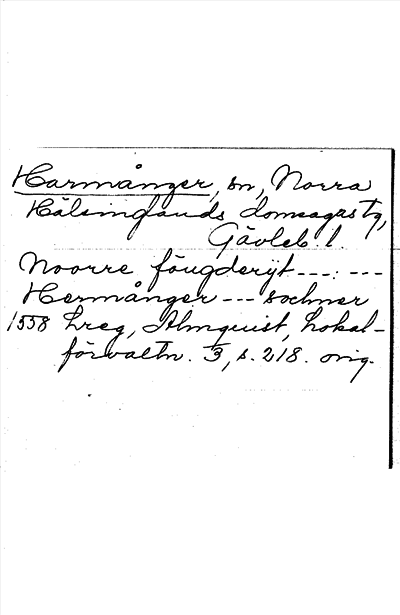 Harmånger, sn, Norra
Hälsinglands domsagas tg,
Gävleb. l.
Noorre föugderijt ---:---
Hermånger --- sochner
1558 Lreg, Almquist, Lokal-
förvaltn. 3, s. 218. orig.